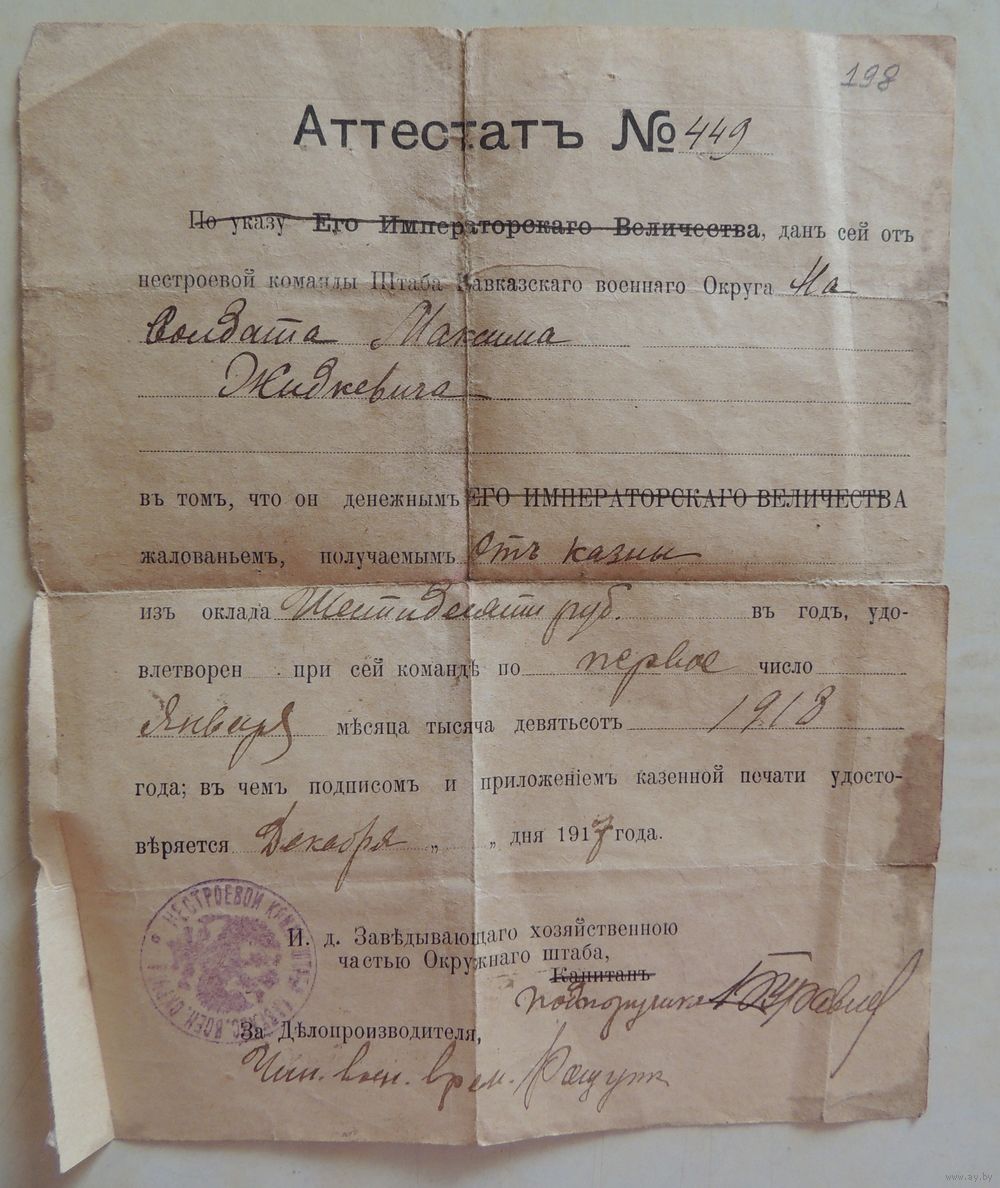 198
Аттестатъ № 449
По указу Его Императорскаго Величества, данъ сей отъ
нестроевой команды Штаба Кавказскаго военнаго Округа На
Солдата Максима
Жидкевича
въ томъ, что он денежнымъ ЕГО ИМПЕРАТОРСКАГО ВЕЛИЧЕСТВА
жалованьемъ, получаемымъ Отъ казны
изъ оклада Шестидесяти руб. въ годъ, удо-
влетворен при сей командѣ по первое число
Января мѣсяца тысяча девятьсотъ 1918
года; въ чемъ подписом и приложеніемъ казенной печати удосто-
вѣряется Декабря „ „ дня 1917 года.
И. д. Завѣдывающаго хозяйственною
частью Окружнаго штаба,
Капитанъ
подпоручикъ
За Дѣлопроизводителя,
Чин. воен. врем.
НЕСТРОЕВОЙ КОМ. ШТАБА КАВКАЗС. ВОЕН. ОКРУГА
www.ay.by